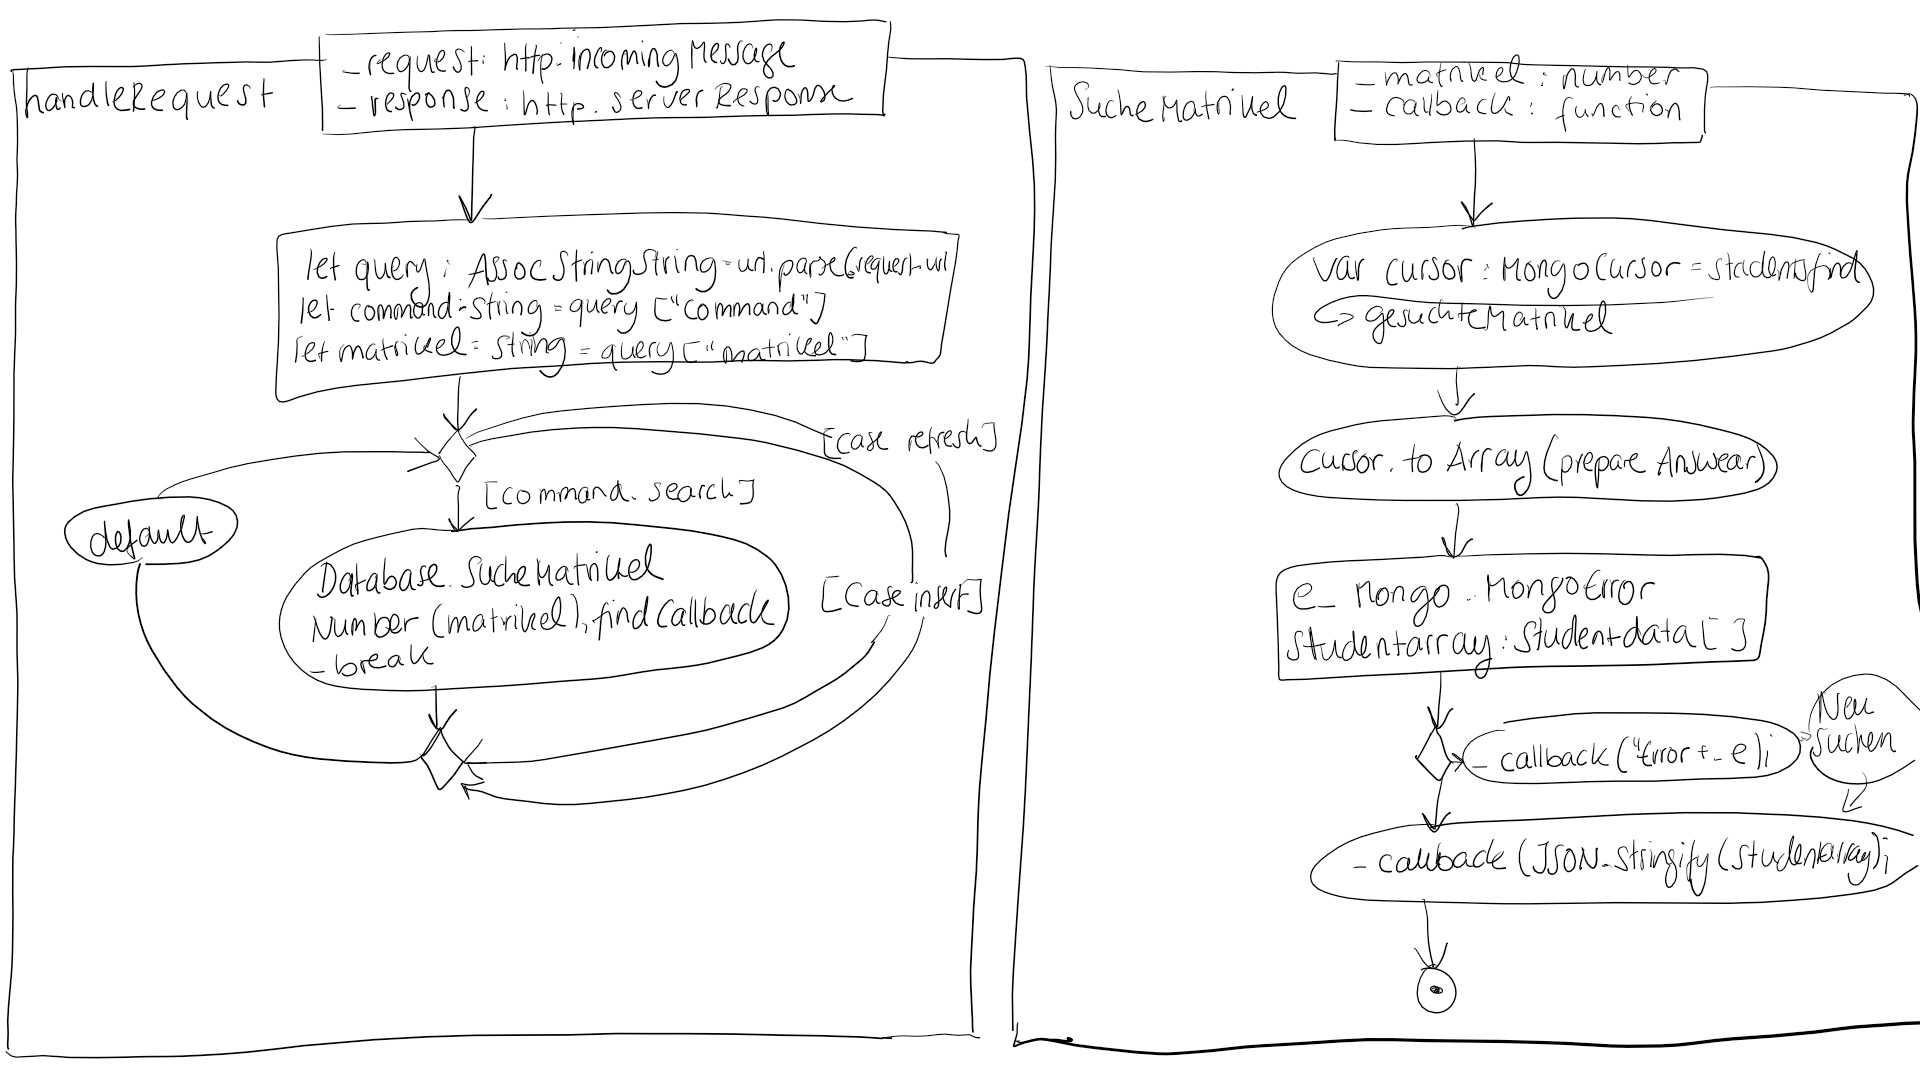 handleRequest
_request: http.incomingMessage
_ response: http.serverResponse
let query: AssocStringString=url.parse(request.url
let command:String = query ["Command"]
let matrikel: String = query ["matrikel"]
[case refresh]
[command.search]
default
Database.SucheMatrikel
Number (matrikel), findCallback
_ break
[Case insert]
SucheMatrikel
_ matrikel : number
_ callback : function
var cursor : MongoCursor = students.find
gesuchteMatrikel
Cursor.to Array (prepare Answear)
e_ Mongo.MongoError
Studentarray: Studentdata[ ]
_ callback ("Error + _ e);
Neu
suchen
_ callback (JSON.stringify (studentarray);